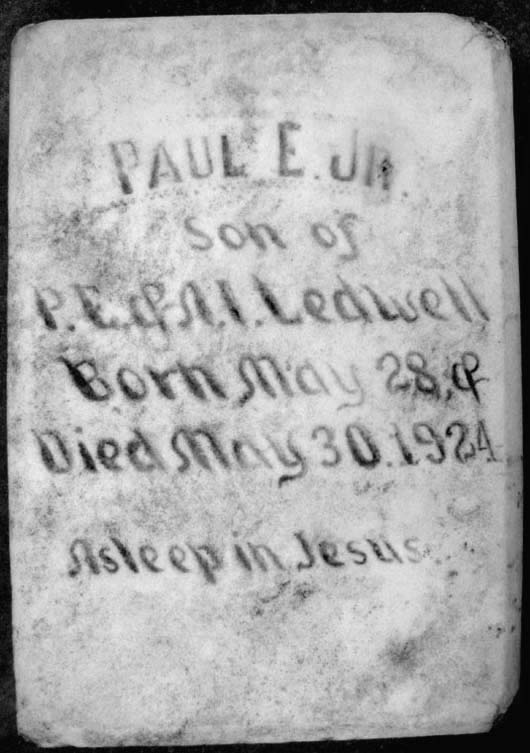 PAUL E. JR.
Son of
P. E. & A. I. Ledwell
Born May 28, &
Died May 30. 1924
Asleep in Jesus.